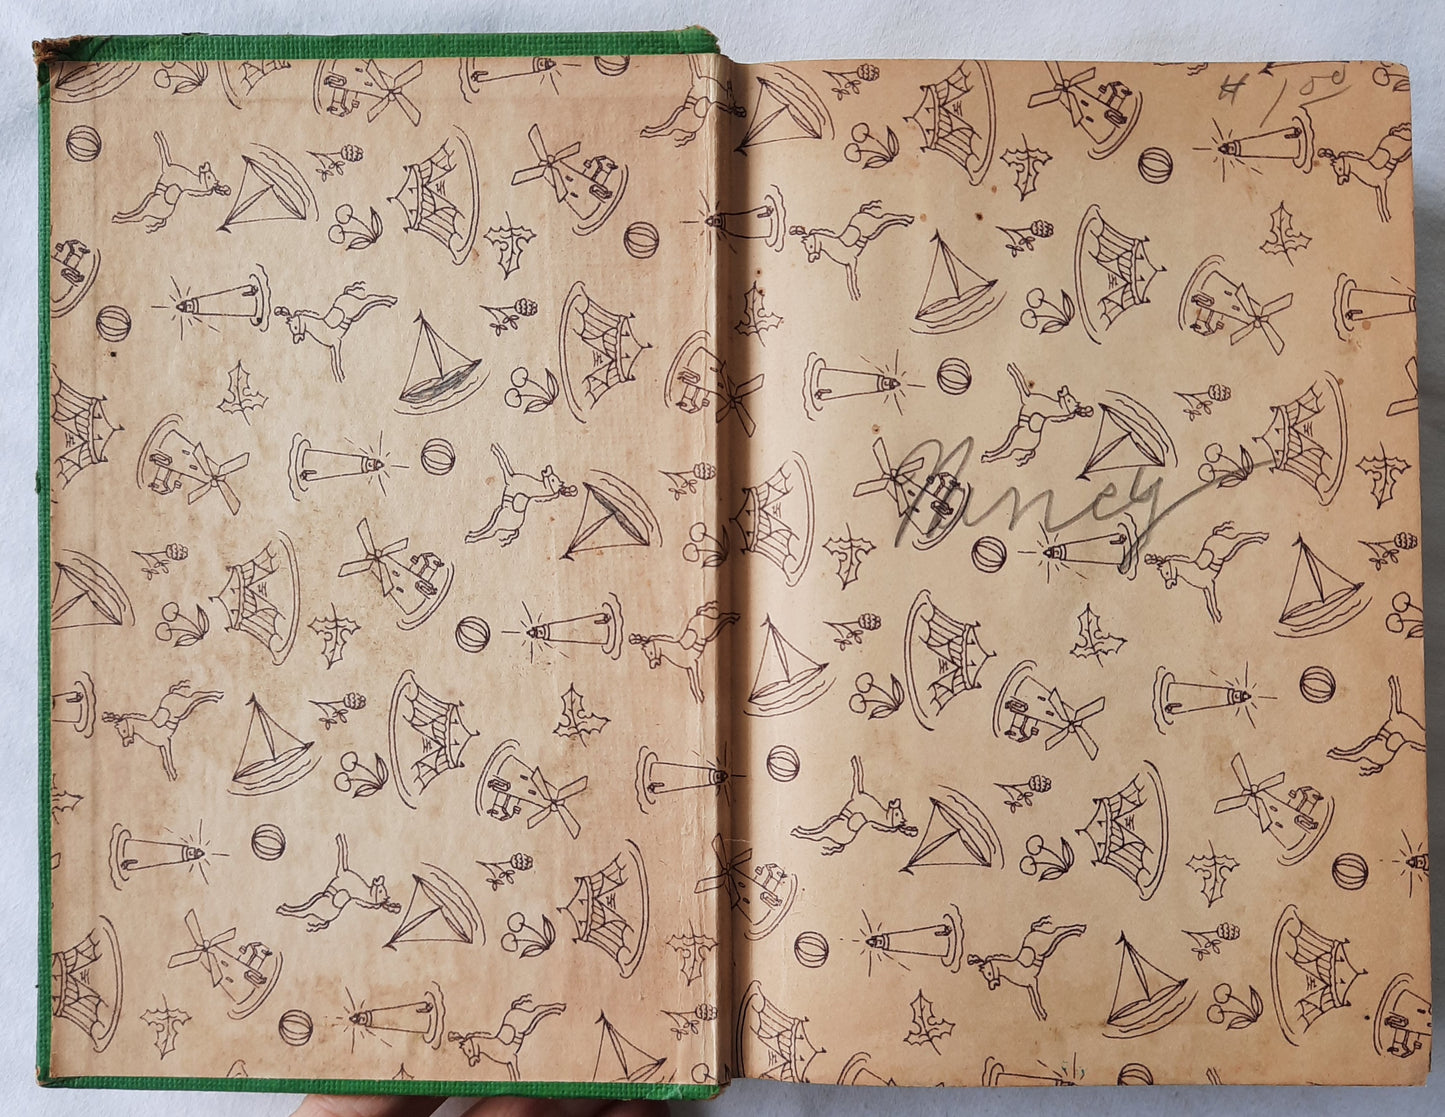 # 1.00
Nancy